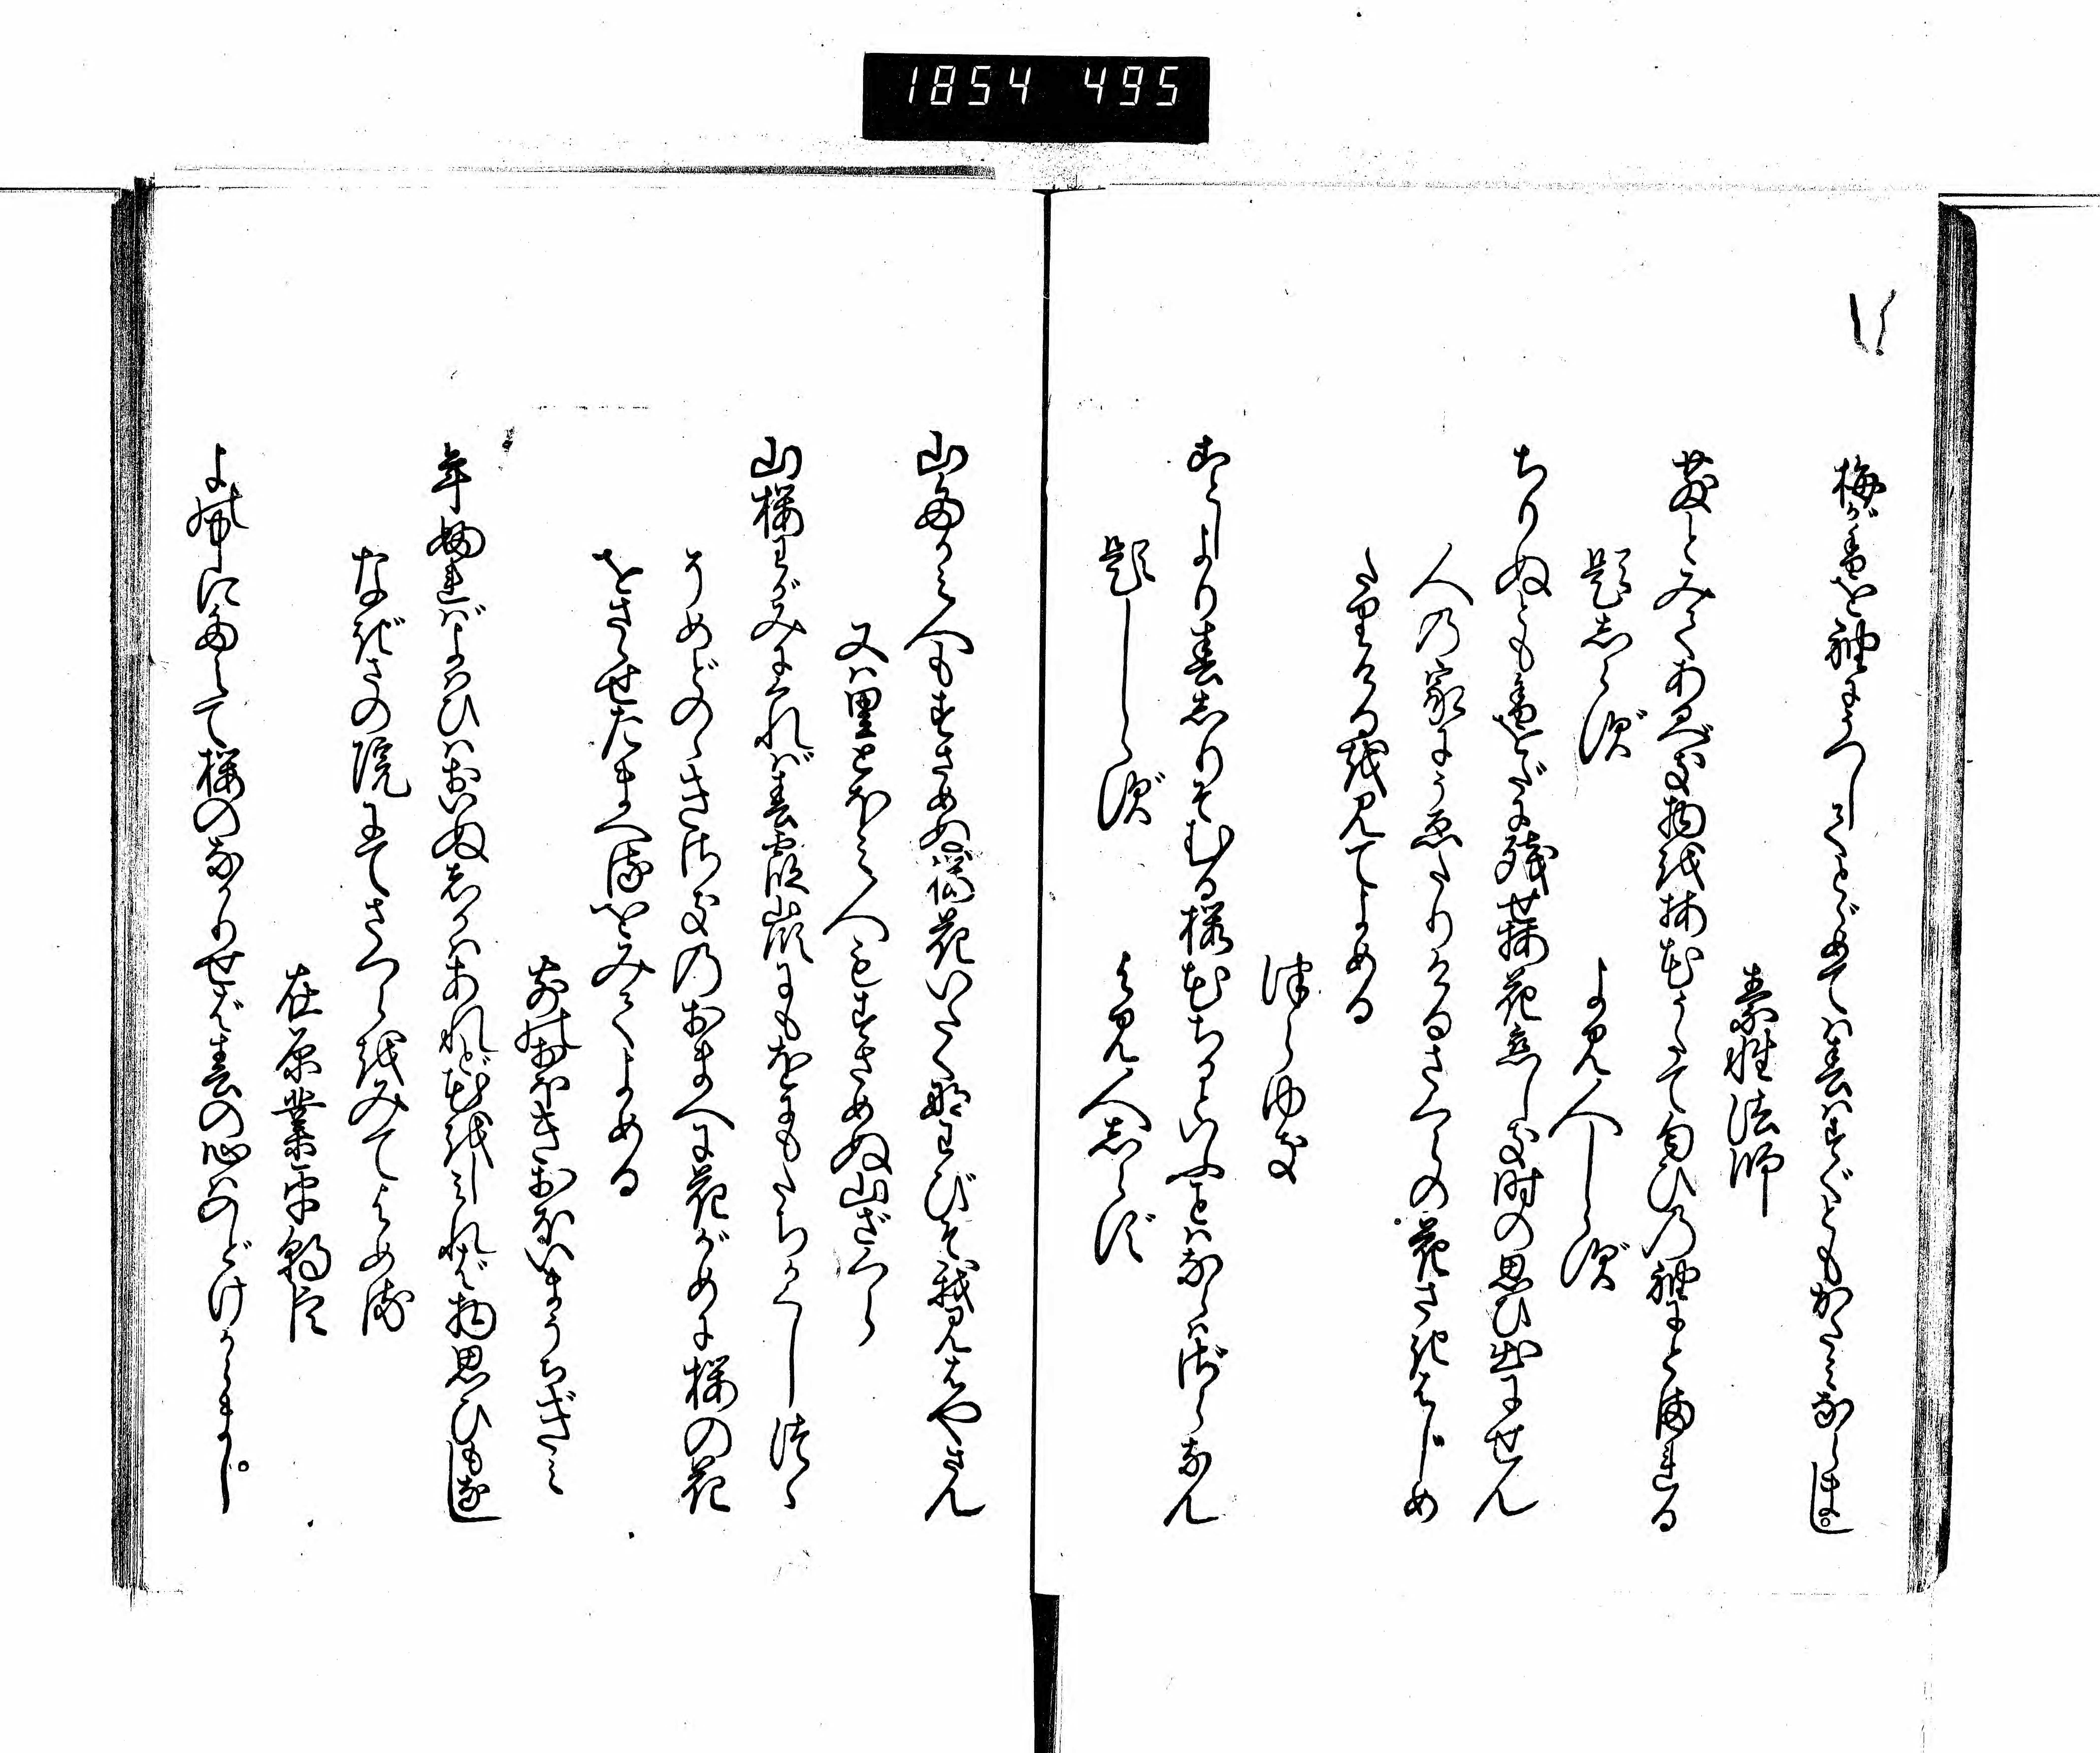 1854 495
梅が香を袖にうつしてとゞめては春はすぐともかたみならまし
素性法師
散とみてあるべき物を梅花うたて匂ひの袖にとまれる
題しらず　よみ人しらず
ちりぬとも香をだに残せ梅花恋しき時の思ひ出にせん
人の家にうゑたりけるさくらの花さきはじめ
たりけるを見てよめる
つらゆき
ことしより春しりそむる桜花ちるといふことはならはざらなん
題しらず　よみ人しらず
山たかみ人もすさめぬ桜花いたくなわびそ我見はやさん
又は里とほみ人もすさめぬ山ざくら
山桜わがみにくれば春霞嶺にもをにもたちかくしつゝ
そめどのゝきさきのおまへに花がめに桜の花
をさゝせたまへるをみてよめる
さきのおほきおほいまうちぎみ
年ふればよはひはおいぬしかはあれど花をしみれば物思ひもなし
なぎさの院にてさくらをみてよめる
在原業平朝臣
よの中にたえて桜のなかりせば春の心はのどけからまし